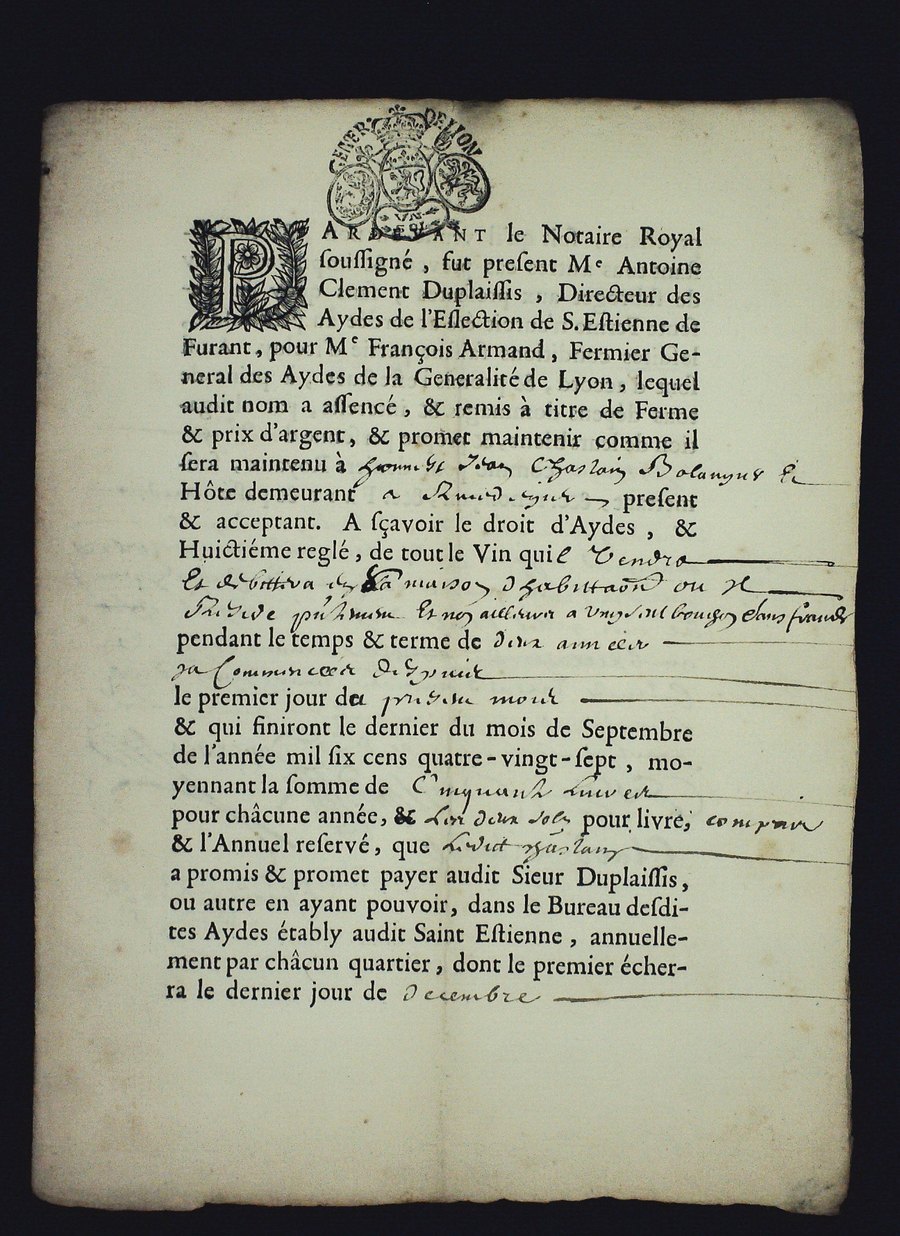 GENER. DE LION
VN SOL
PARDEVANT le Notaire Royal
soussigné, fut present Me Antoine
Clement Duplaissis, Directeur des
Aydes de l'Eslection de S. Estienne de
Furant, pour Me François Armand, Fermier Ge-
neral des Aydes de la Generalité de Lyon, lequel
audit nom a assencé, & remis à titre de Ferme
& prix d'argent, & promet maintenir comme il
sera maintenu à Jean Chastain Bolanger Et
Hôte demeurant a present
& acceptant. A sçavoir le droit d'Aydes, &
Huictiéme reglé, de tout le Vin quil Vendra
Et debittera en Sa maison d'habittaon ou Il
Et non ailleurs a un seul bouchon Sans fraude
pendant le temps & terme de deux années
ja Commencées
le premier jour du present mois
& qui finiront le dernier du mois de Septembre
de l'année mil six cens quatre-vingt-sept, mo-
yennant la somme de Cinquante Livres
pour châcune année, & Les deux Sols pour livre, compris
& l'Annuel reservé, que Ledict Chastaing
a promis & promet payer audit Sieur Duplaissis,
ou autre en ayant pouvoir, dans le Bureau desdi-
tes Aydes étably audit Saint Estienne, annuelle-
ment par châcun quartier, dont le premier écher-
ra le dernier jour de decembre